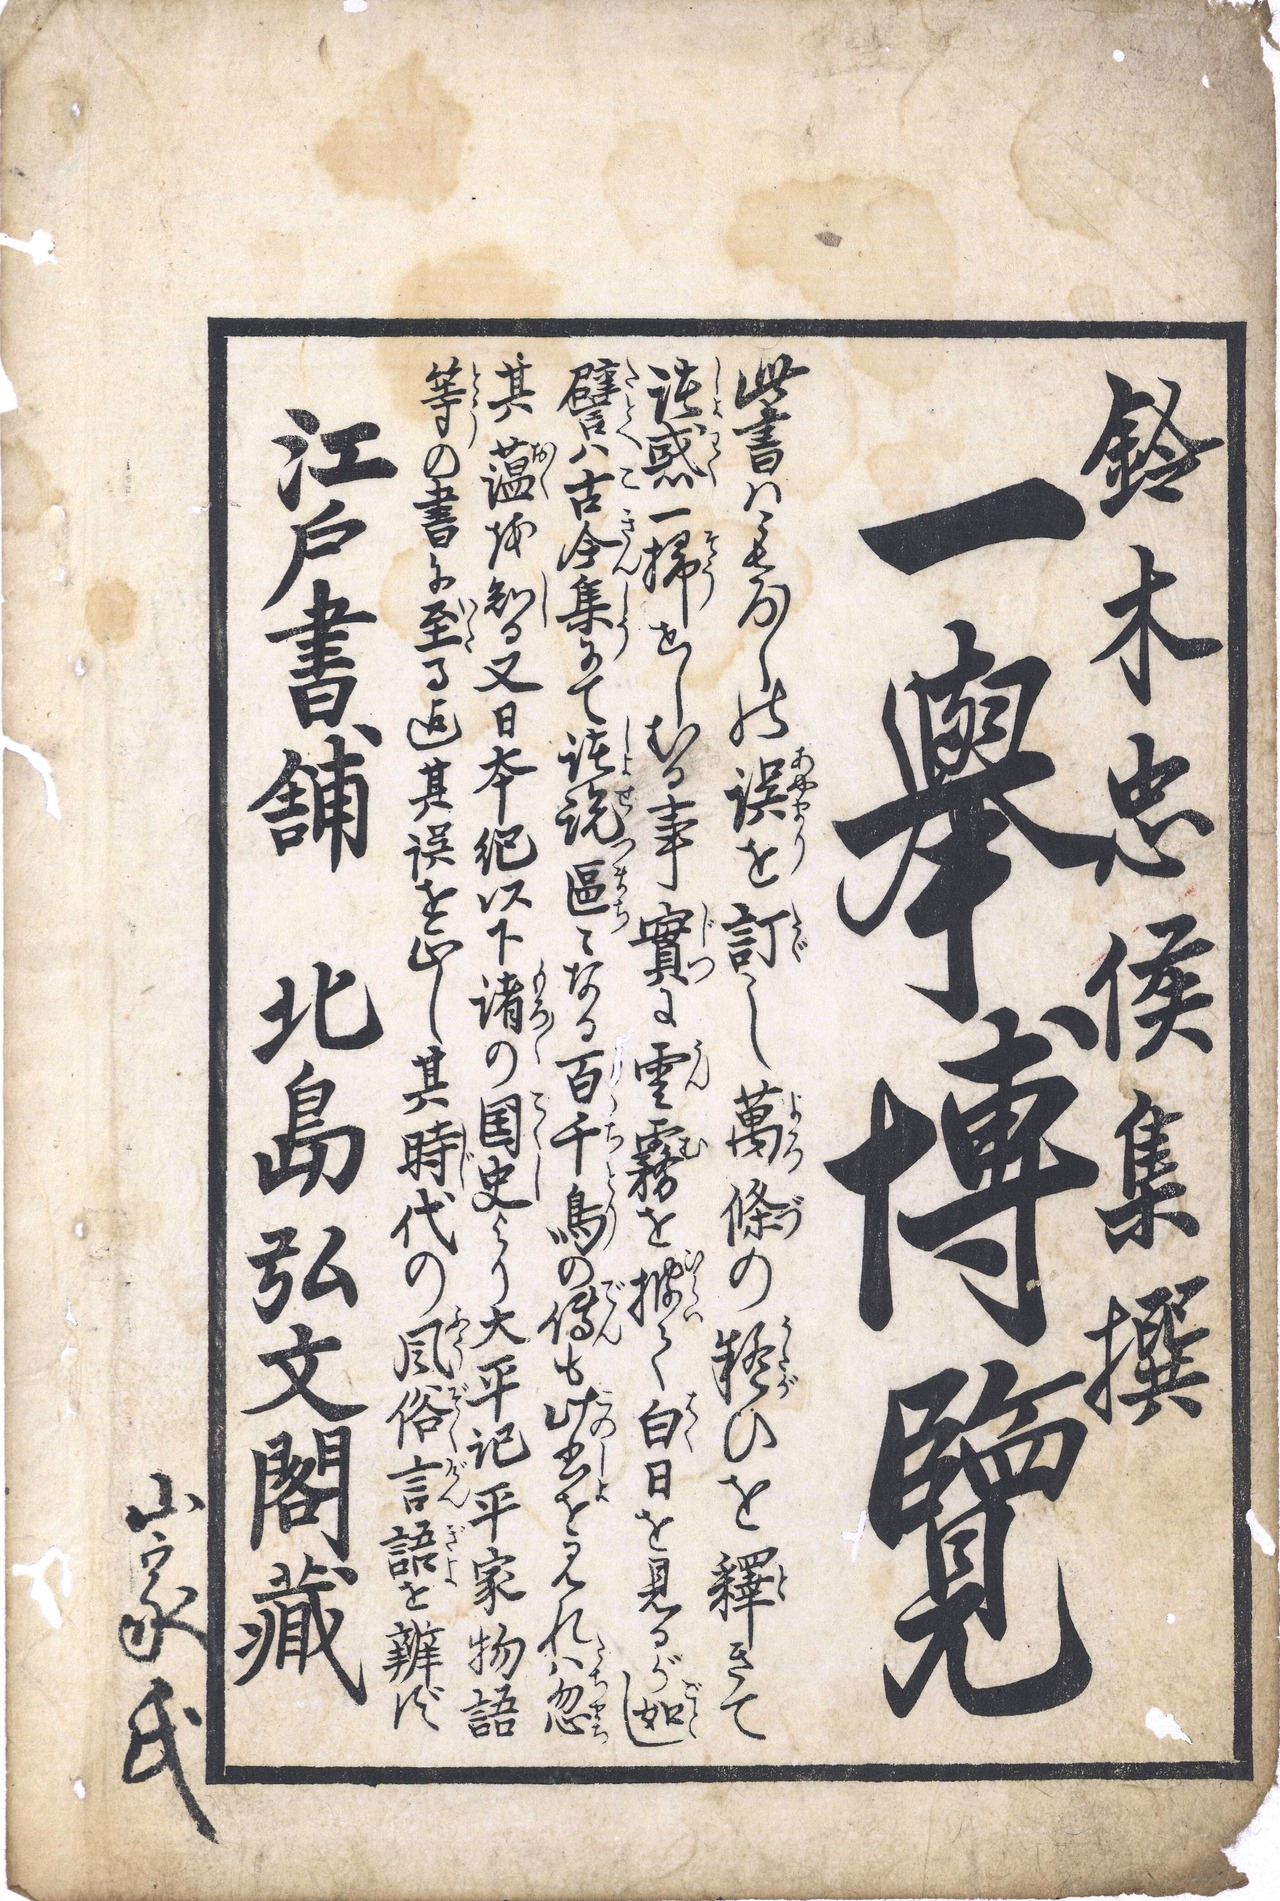 鈴木忠侯集撰
一擧博覧
此書ハもろ〳〵の誤を訂し萬條の疑ひを釋きて
諸惑一掃せしむる事實に雲霧を披て白日を見るが如し
譬ハ古今集にて諸説區〻なる百千鳥の傳も此書をみれハ忽
其薀奥を知る又日本紀以下諸の国史より大平記平家物語
等の書に至る迄其誤を正し其時代の風俗言語を辨ず
江戸書舗　北島弘文閣藏
山家氏